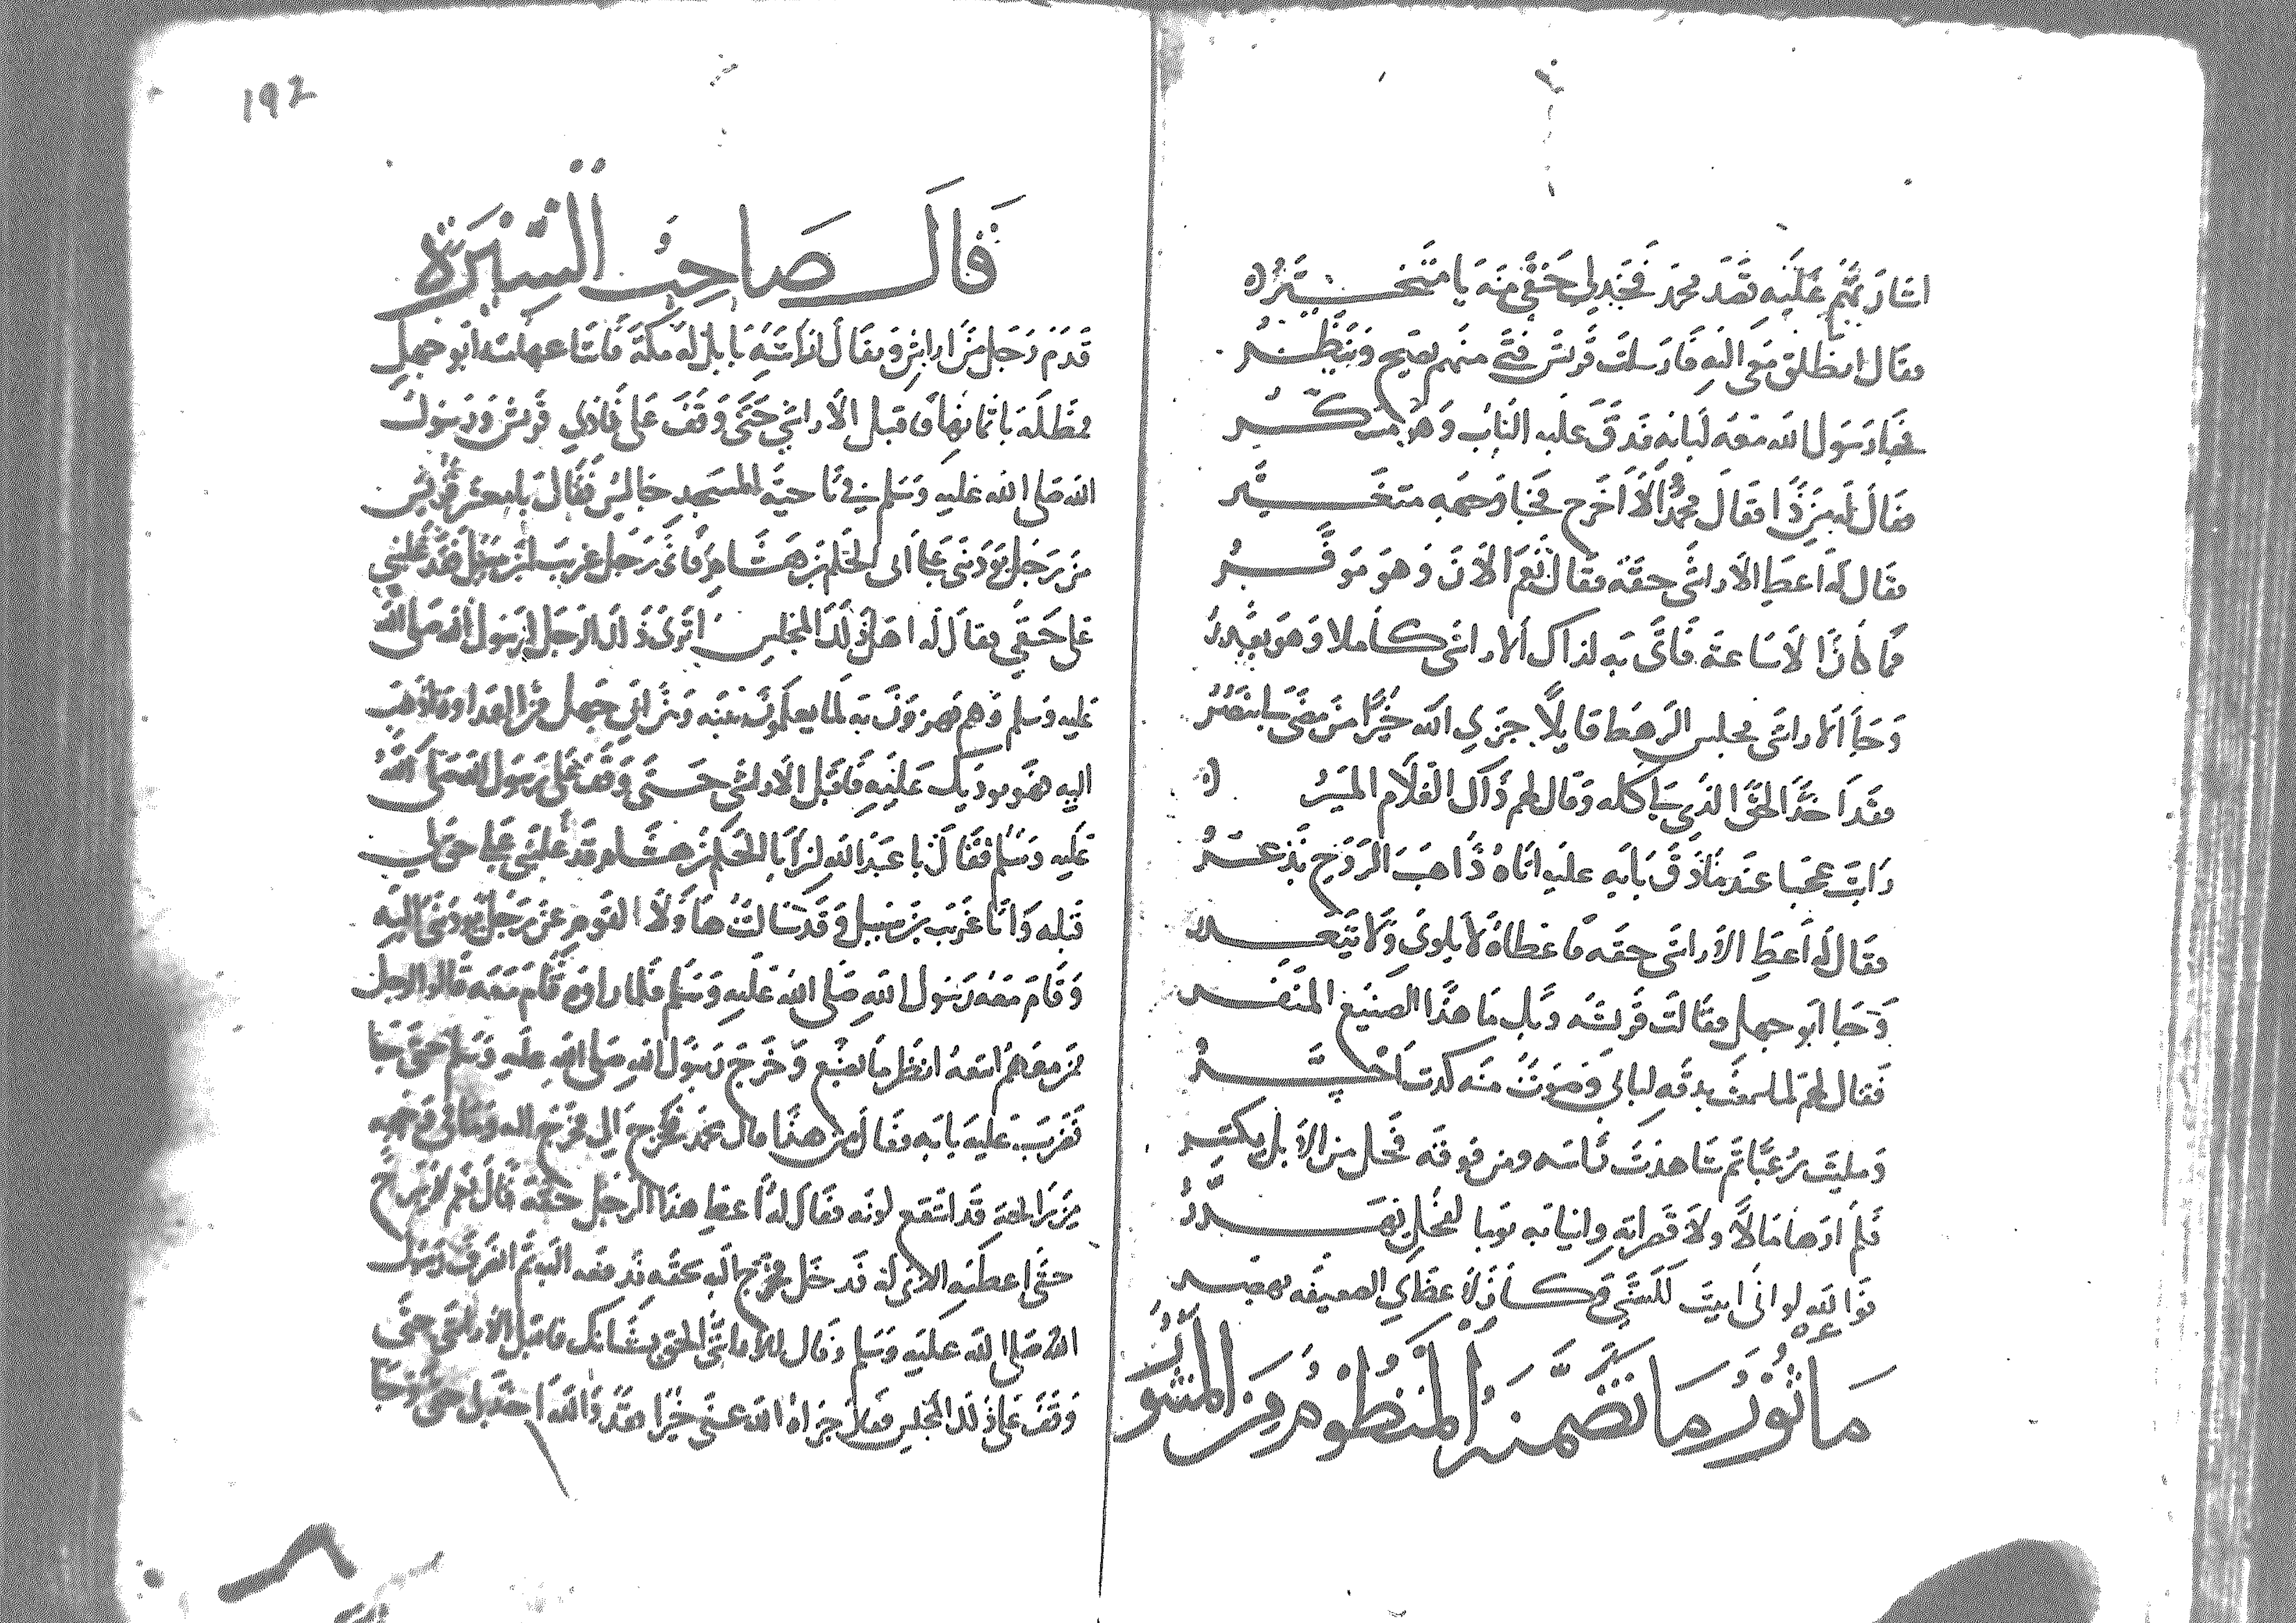 اشاربهم عليه بقصد محمد فخذ لي حقي منه يا متخير
فقال انطلق معي اليه فارسلت قريش فتى منهم يصيح وينظر
فجا رسول الله معه لبابه فدق عليه الباب وهو مكبر
فقال له من ذا فقال محمد الا اخرج فجا وجهه متغير
فقال له اعط الاراشي حقه فقال نعم الان وهو موقر
فما كان الا ساعة فاتى به لذاك الاراشي كاملا وهو يعذر
وجا الاراشي مجلس الرهط قايلا جزي الله خيرا من مضى لي ينصر
فقد اخذ الحق الذي لي كله وقال لهم ذاك الغلام الميسر
رايت عجبا عندما دق بابه عليه اتاه ذاهب الروح يذعر
فقال له اعط الاراشي حقه فاعطاه لا يلوى ولا يتعذر
وجا ابو جهل فقالت قريشه ويلك ما هذا الصنيع المنفر
فقال لهم لما سمعت بدقه لبابي وصوت منه كدت احير
ومليت رعبا ثم شاهدت راسه ومن فوقه فحل من الابل يكبر
فلم ار هامالا ولا قصراته وانيابه يوما لفحل يهدر
فوالله لو اني ابيت للستي وكان لاعظاي الضعيفه يهصر
ماثور ما تضمنه المنظوم من المنثور
192
قال صاحب السيرة
قدم رجل من اراش ويقال اراشة بابل له مكة فابتاعها منه ابو جهل
فمطله باثمانها فاقبل الاراشي حتى وقف على نادي قريش ورسول
الله صلى الله عليه وسلم في ناحية المسجد جالس فقال يا معشر قريش
من رجل يودني على ابي الحكم بن هشام فاني رجل غريب ابن سبيل قد غلبني
على حقي فقال له اهل ذلك المجلس اترى ذلك الرجل لرسول الله صلى الله
عليه وسلم وهم يهزون به لما يعلمون بينه وبين ابي جهل من العداوة اذهب
اليه فهو يوديك عليه فاقبل الاراشي حتى وقف على رسول الله صلى الله
عليه وسلم فقال يا عبد الله ان ابا الحكم بن هشام قد غلبني على حق لي
قبله وانا غريب بن سبيل وقد سالت هاولا القوم عن رجل يودني اليه
وقام معه رسول الله صلى الله عليه وسلم فلما راوه قام معه قالوا لرجل
ممن معهم اتبعه انظر ما يصنع وخرج رسول الله صلى الله عليه وسلم حتى جا
فضرب عليه بابه فقال من هذا قال محمد فاخرج الي فخرج اليه وما في وجهه
من رايحة قد انتقع لونه فقال له اعط هذا الرجل حقه قال نعم لا تبرح
حتى اعطيه الذي له فدخل فخرج اليه بحقه فدفعه اليه ثم انصرف رسول
الله صلى الله عليه وسلم وقال للاراشي الحق بشانك فاقبل الاراشي حتى
وقف على ذلك المجلس فقال جزاه الله عني خيرا فقد والله اخذ لي حقي وجا